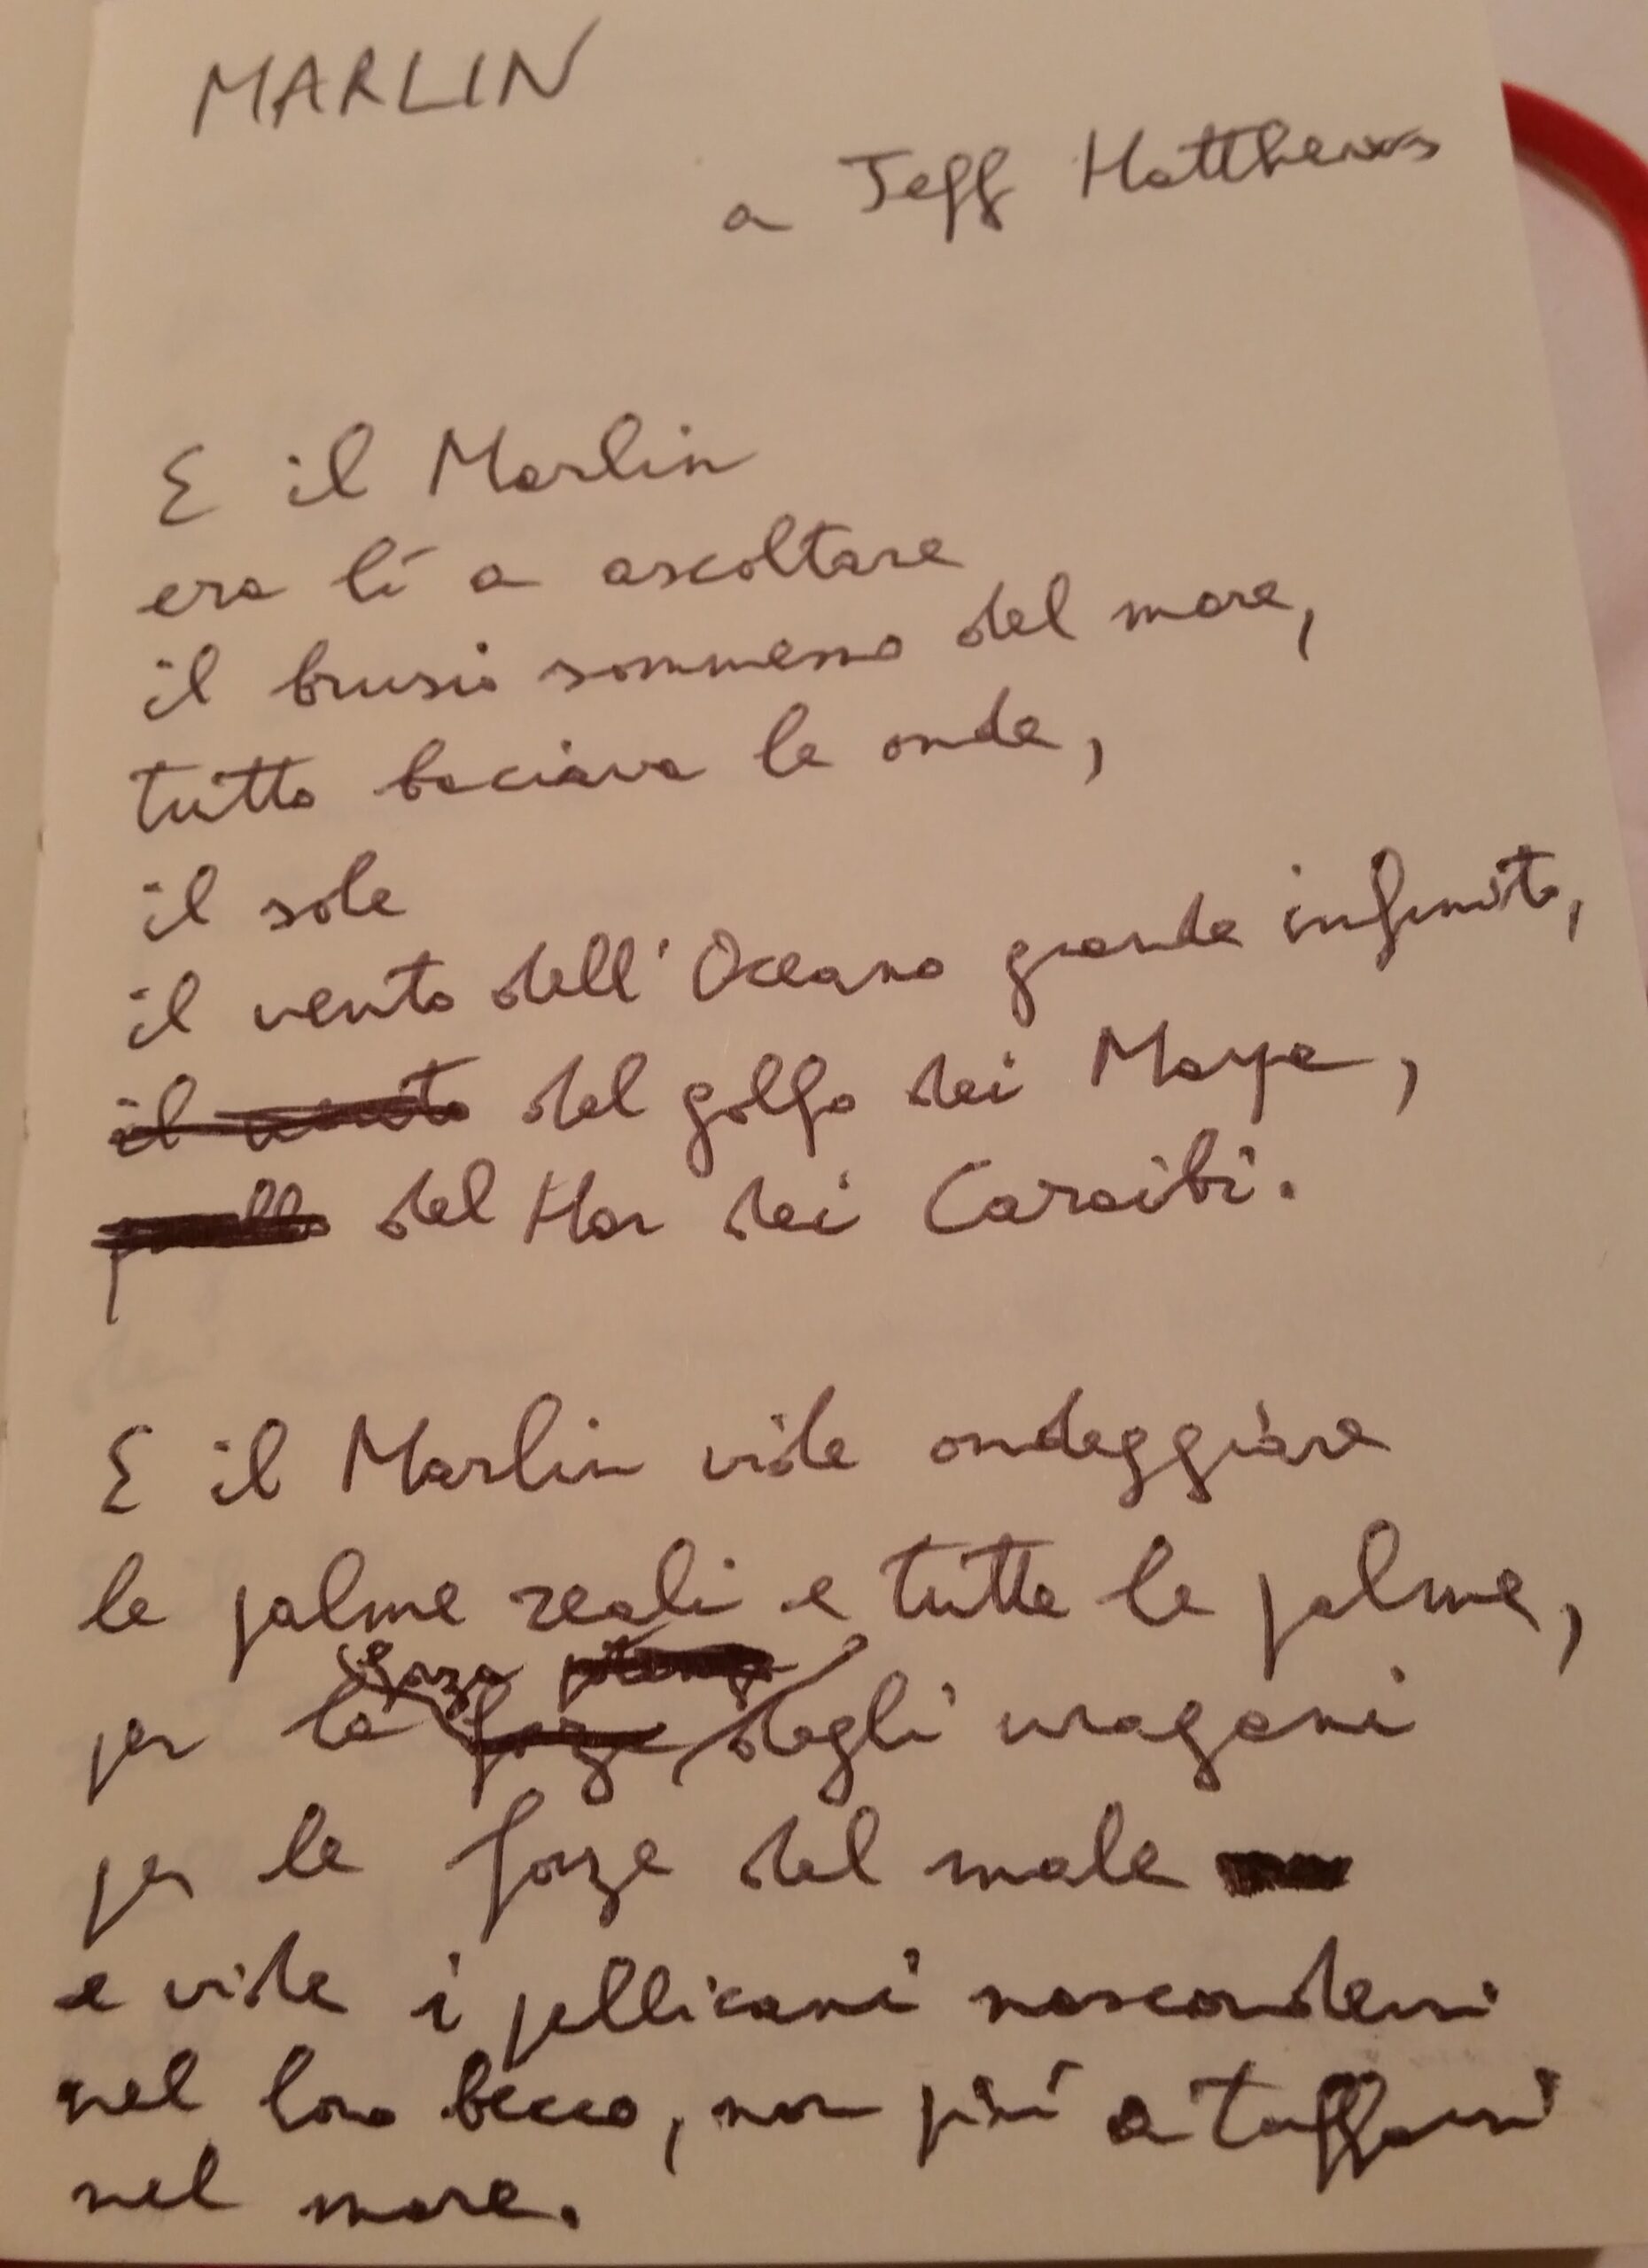 MARLIN
a Jeff Matthews
E il Marlin
era lì a ascoltare
il brusio sommesso del mare,
tutto baciava le onde,
il sole
il vento dell'Oceano grande infinito,
il vento del golfo dei Maya,
quello del Mar dei Caraibi.
E il Marlin vide ondeggiare
le palme reali e tutte le palme,
forza
per la forza degli uragani
per le forze del male
e vide i pellicani nascondersi
nel loro becco, non più a tuffarsi
nel mare.